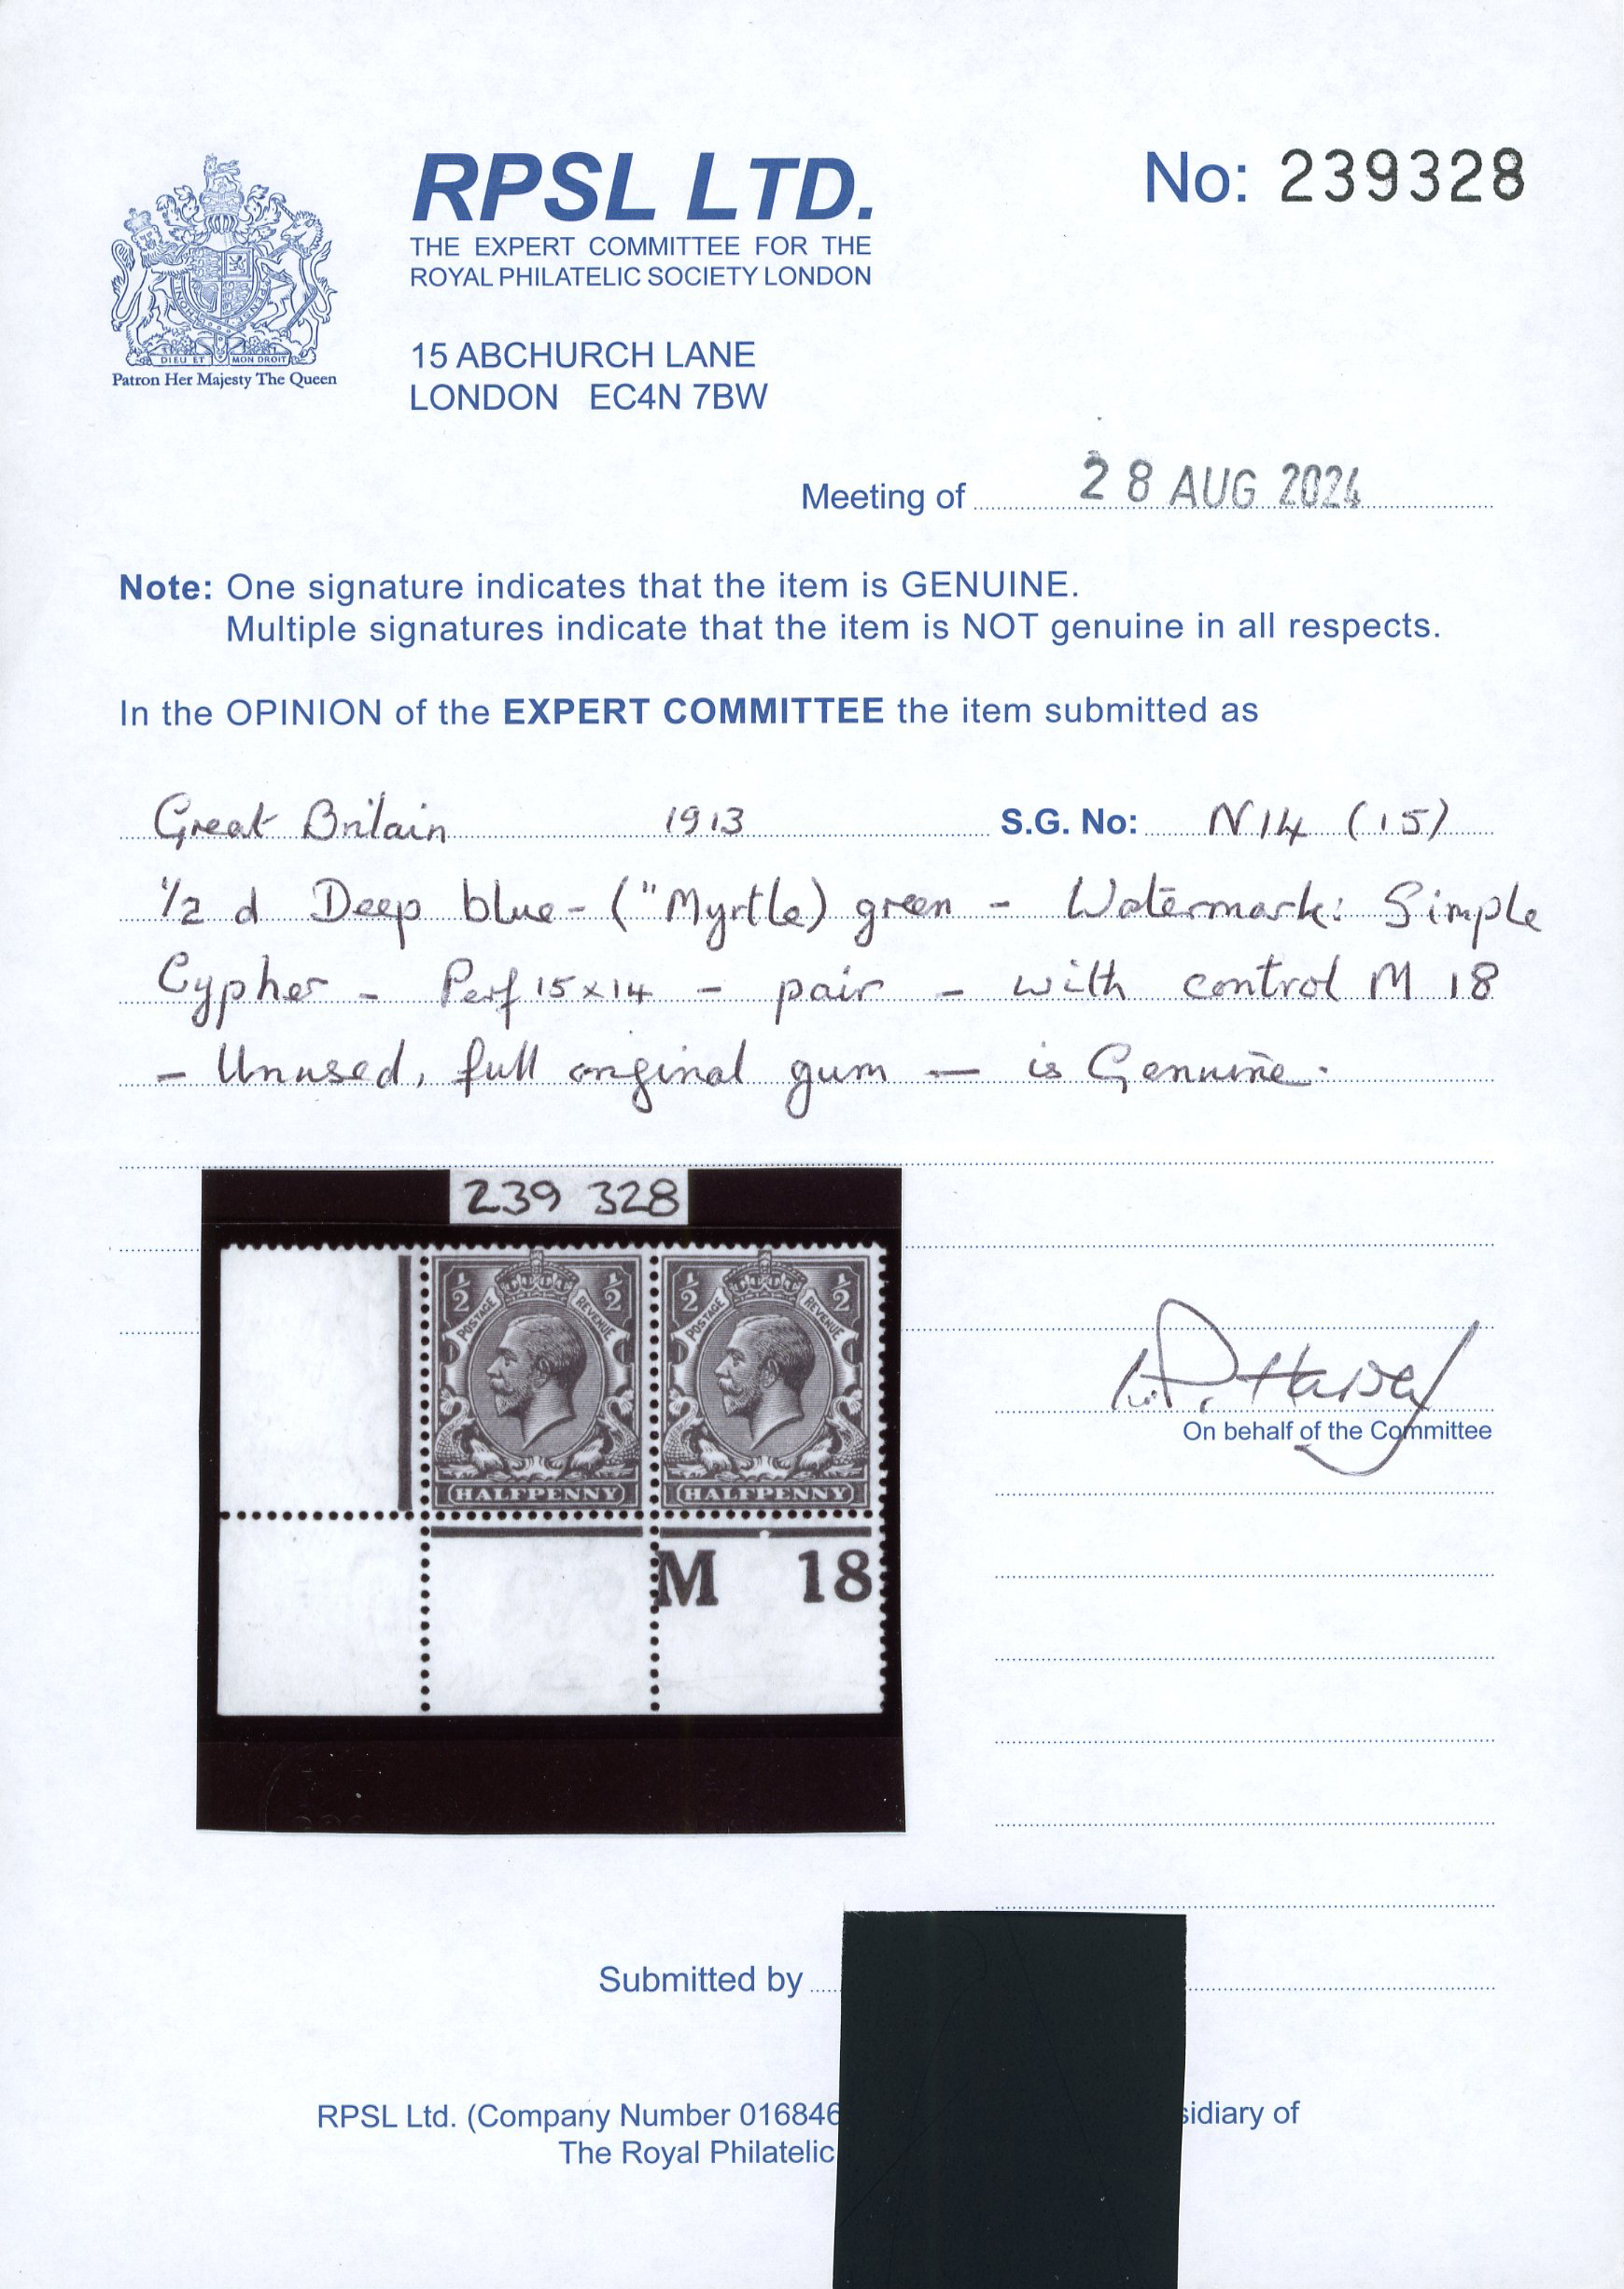 RPSL LTD.
THE EXPERT COMMITTEE FOR THE
ROYAL PHILATELIC SOCIETY LONDON
15 ABCHURCH LANE
LONDON EC4N 7BW
No: 239328
DIEU ET MON DROIT
Patron Her Majesty The Queen
Meeting of 28 AUG 2024
Note: One signature indicates that the item is GENUINE.
Multiple signatures indicate that the item is NOT genuine in all respects.
In the OPINION of the EXPERT COMMITTEE the item submitted as
Great Britain 1913 S.G. No: N14 (15)
1/2 d Deep blue- ("Myrtle) green - Watermark: Simple
Cypher - Perf 15x14 - pair - with control M 18
- Unused, full original gum — is Genuine.
239 328
1/2 POSTAGE REVENUE 1/2 1/2 POSTAGE REVENUE 1/2
HALFPENNY HALFPENNY
M 18
On behalf of the Committee
Submitted by
RPSL Ltd. (Company Number 016846 sidiary of
The Royal Philatelic